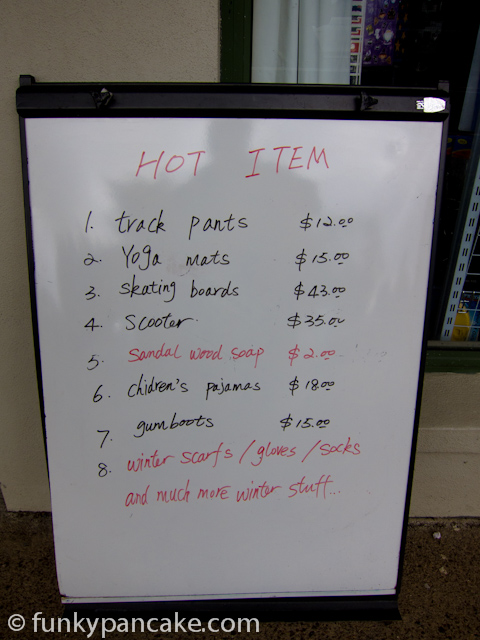 HOT ITEM
1. track pants $12.00
2. Yoga mats $15.00
3. skating boards $43.00
4. scooter $35.00
5. sandal wood soap $2.00
6. chidren's pajamas $18.00
7. gumboots $15.00
8. winter scarfs / gloves / socks
and much more winter stuff...
© funkypancake.com